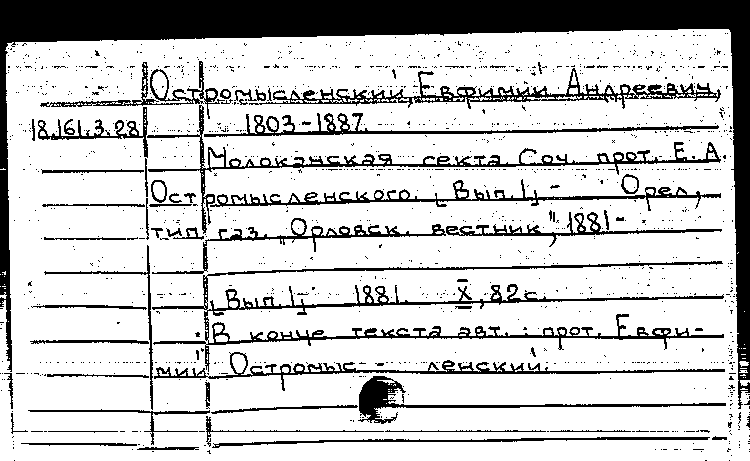 Остромысленский, Евфимий Андреевич,
18.161.3.28 1803-1887.
Молоканская секта Соч. прот. Е. А.
Остромысленского. [Вып. I] - Орел,
тип. газ. „Орловск. вестник", 1881 -
[Вып. I] 1881. X, 82 с.
В конце текста авт.: прот. Евфи-
мий Остромыс - ленский.